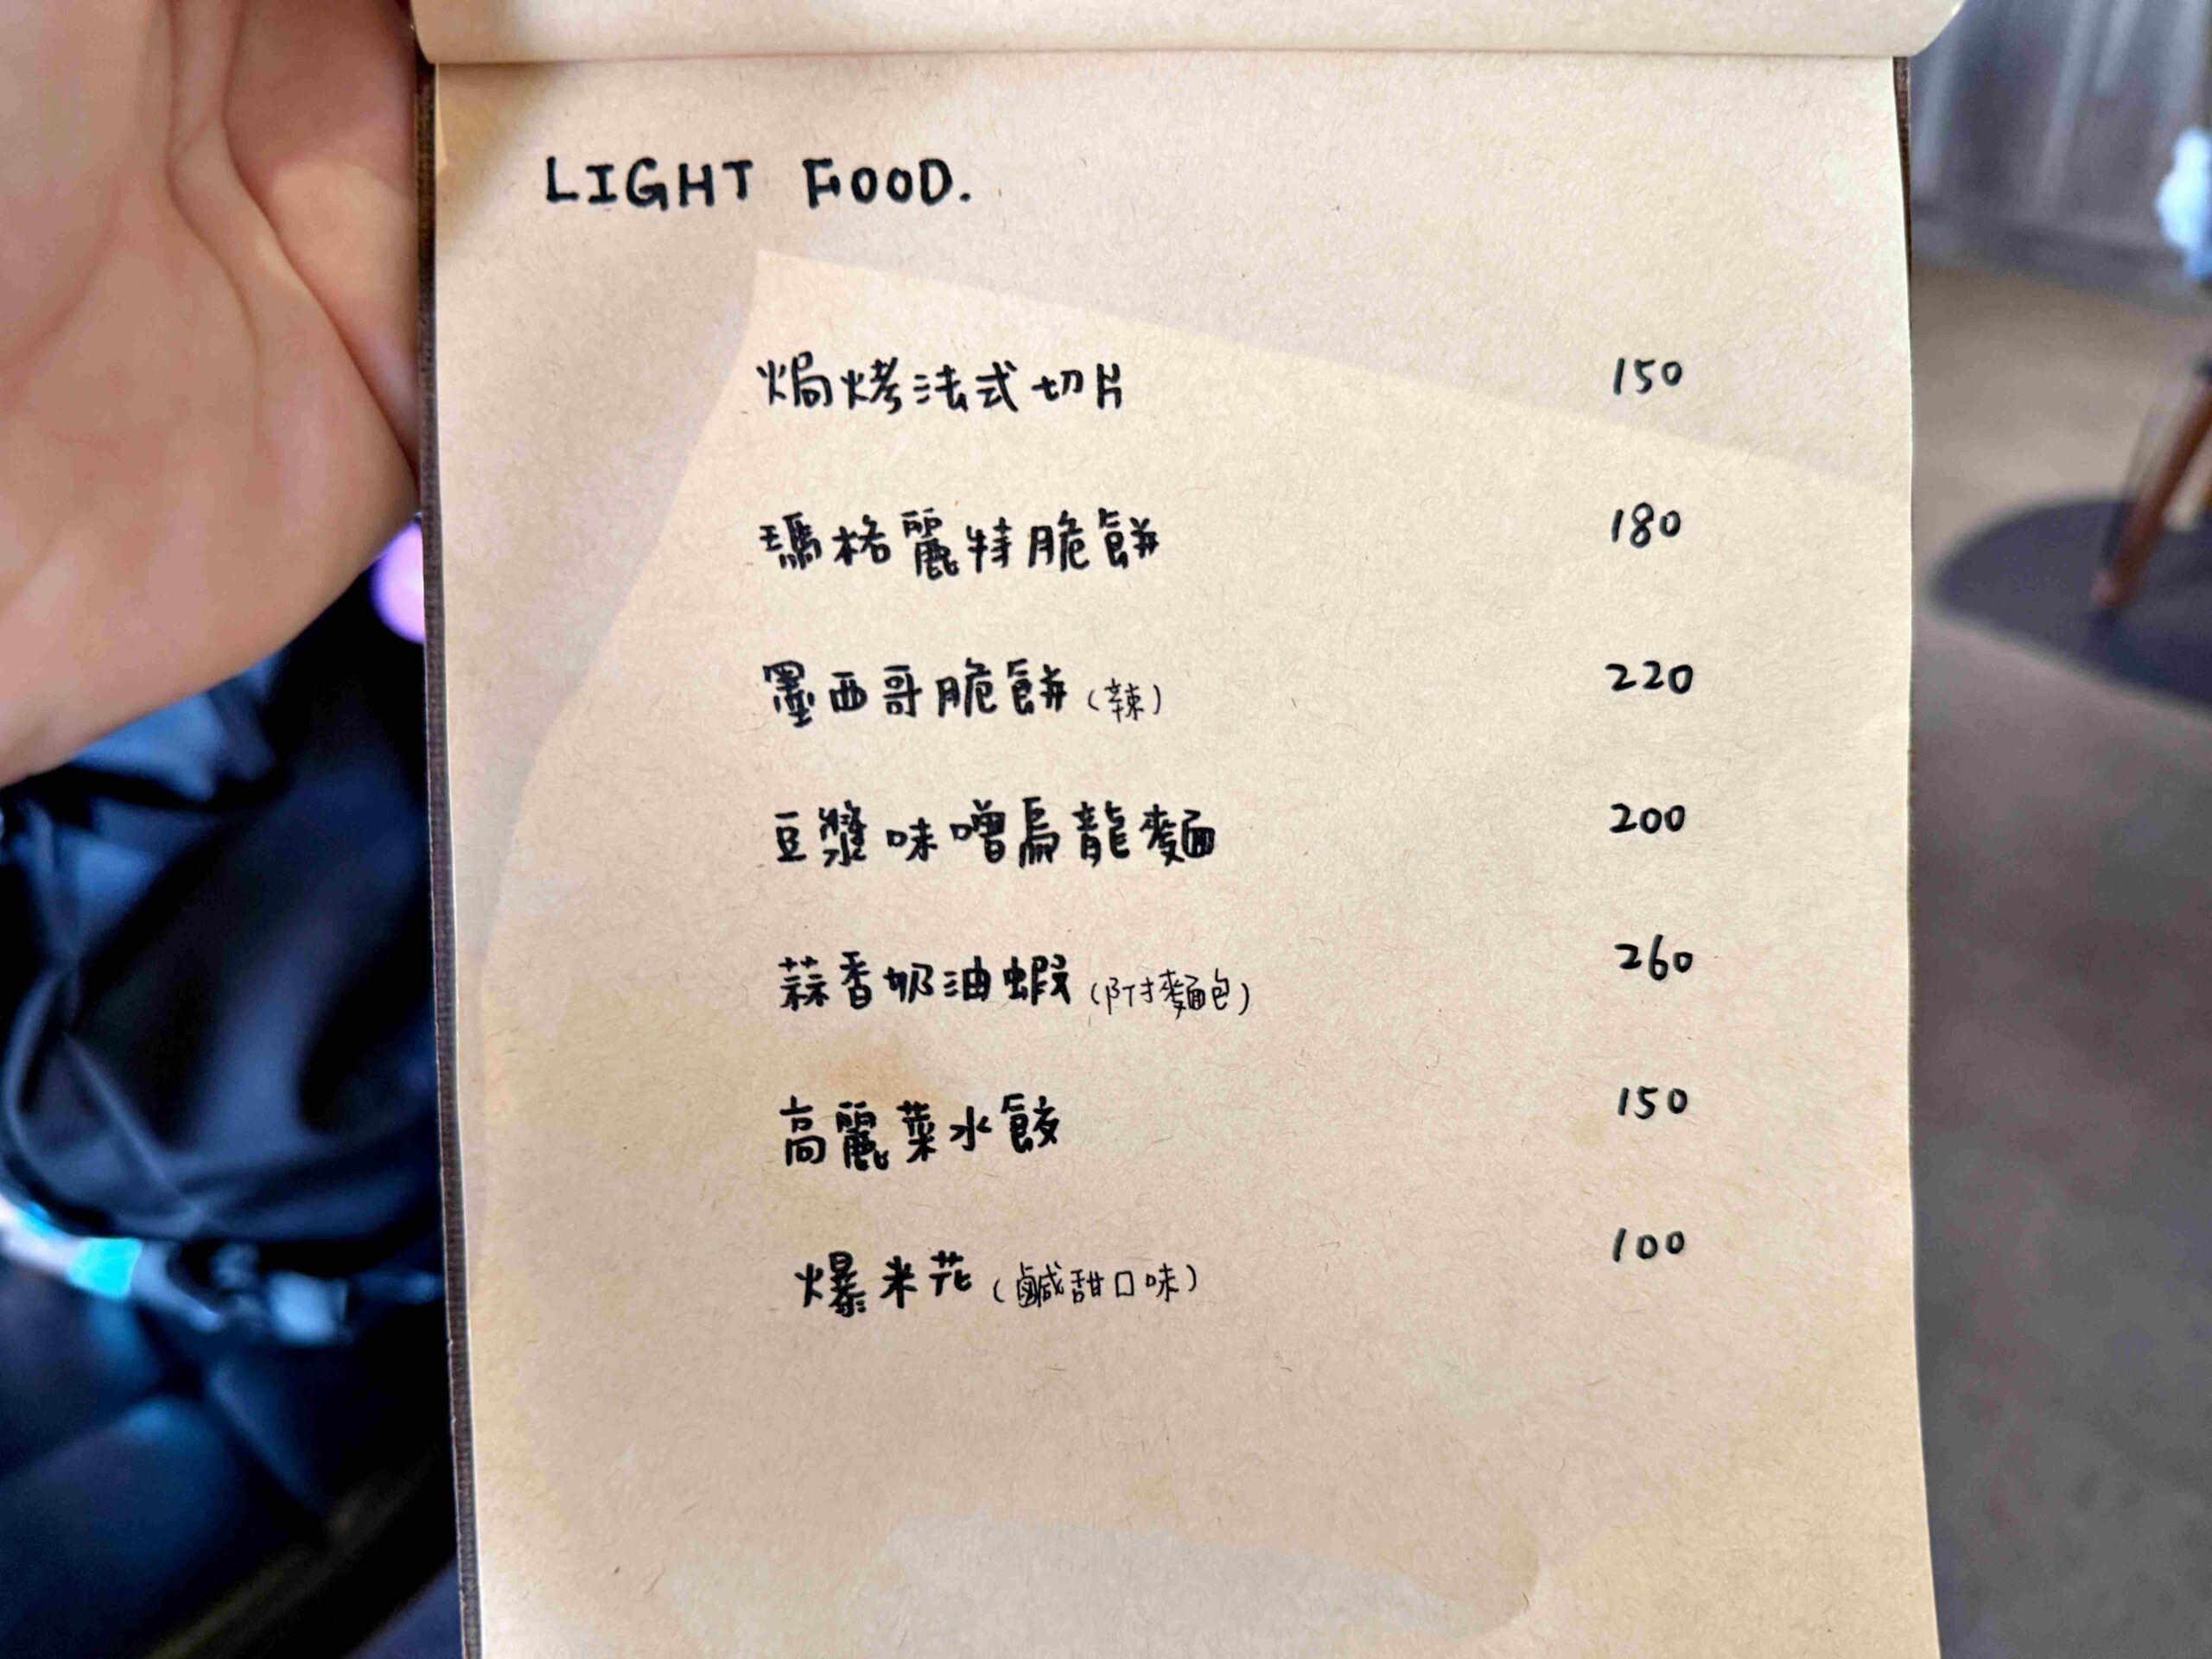 LIGHT FOOD.
焗烤法式切片 150
瑪格麗特脆餅 180
墨西哥脆餅(辣) 220
豆漿味噌烏龍麵 200
蒜香奶油蝦(附麵包) 260
高麗菜水餃 150
爆米花(鹹甜口味) 100